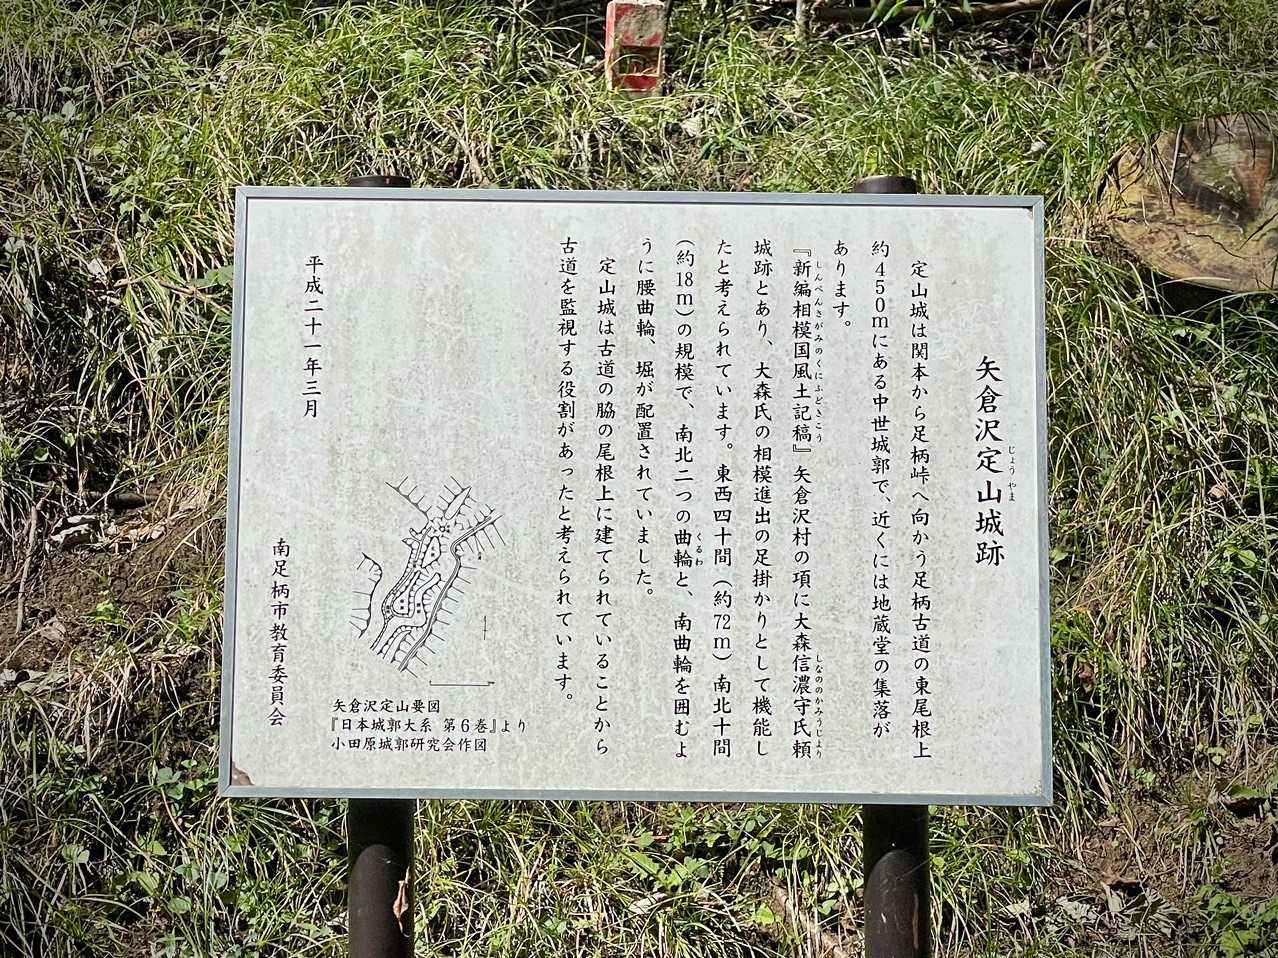 矢倉沢定山城跡
じょうやま
定山城は関本から足柄峠へ向かう足柄古道の東尾根上
約450mにある中世城郭で、近くには地蔵堂の集落が
あります。
『新編相模国風土記稿』矢倉沢村の項に大森信濃守氏頼
しんぺんさがみのくにふどきこう
しなののかみうじより
城跡とあり、大森氏の相模進出の足掛かりとして機能し
たと考えられています。東西四十間(約72m)南北十間
(約18m)の規模で、南北二つの曲輪と、南曲輪を囲むよ
くるわ
うに腰曲輪、堀が配置されていました。
定山城は古道の脇の尾根上に建てられていることから
古道を監視する役割があったと考えられています。
平成二十一年三月
南足柄市教育委員会
矢倉沢定山要図
『日本城郭大系 第6巻』より
小田原城郭研究会作図